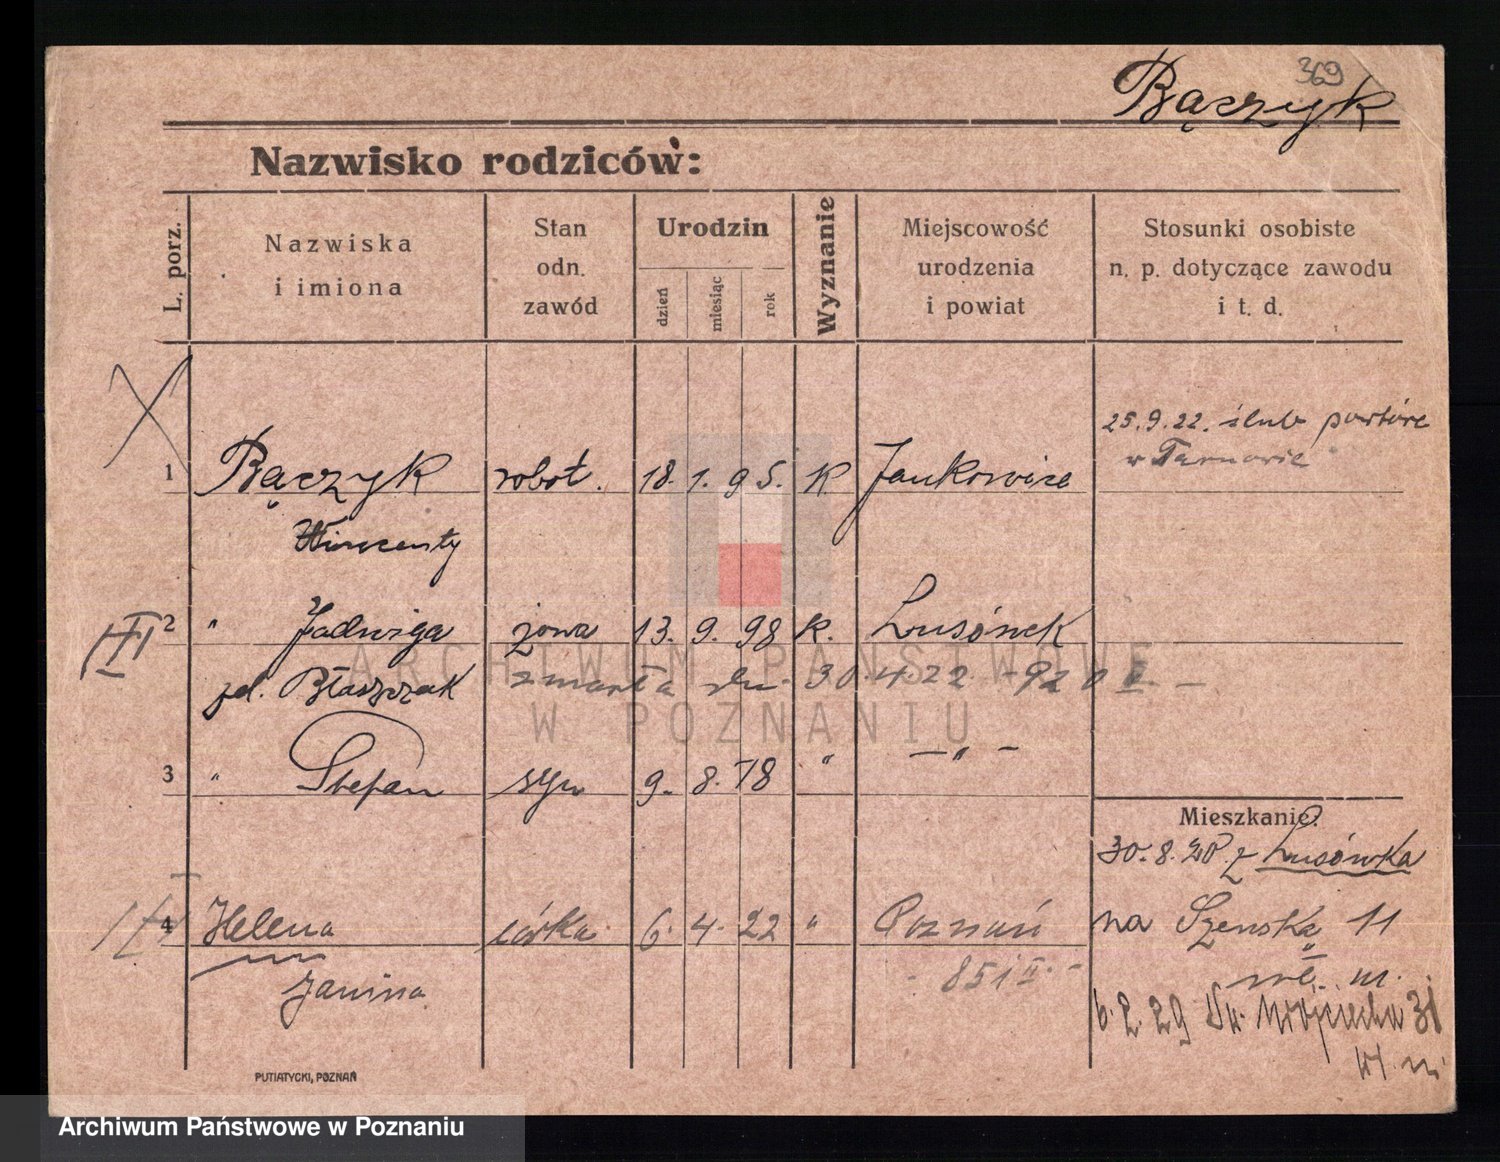 369
Bączyk
Nazwisko rodziców:
L. porz.
Nazwiska
i imiona
Stan
odn.
zawód
Urodzin
dzień
miesiąc
rok
Wyznanie
Miejscowość
urodzenia
i powiat
Stosunki osobiste
n. p. dotyczące zawodu
i t. d.
25.9.22. ślub powtóre
w Tarnowie
1 Bączyk robot. 18. 1. 95. K. Jankowice
Wincenty
III
2 " Jadwiga żona 13. 9. 98 k. Lusówek
zd. Błaszczak zmarła dn. 30.4.22 - 920 II. -
3 " Stefan syn 9. 8. 18 " - " -
Mieszkanie:
30.8.20 z Lusówka
4 Helena córka 6. 4. 22 " Poznań
na Szewska 11
Janina
- 851 II. -
wł. m.
6.2.29 Św. Wojciecha 31
wł. m.
PUTIATYCKI, POZNAŃ
ARCHIWUM PAŃSTWOWE
W POZNANIU
Archiwum Państwowe w Poznaniu